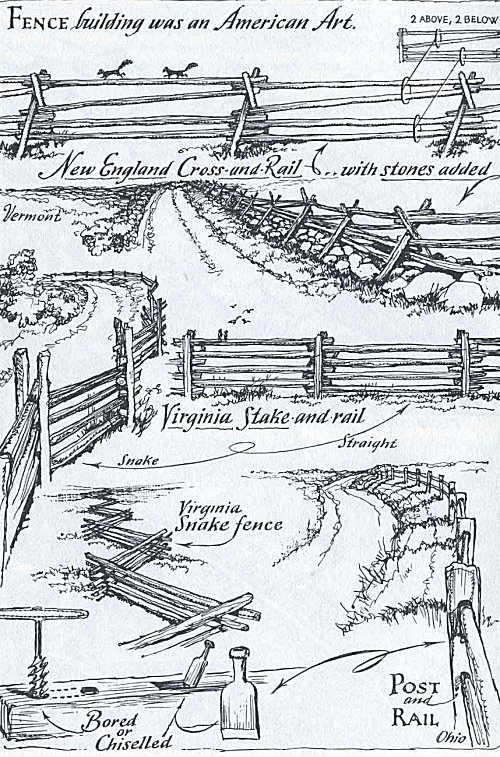 FENCE building was an American Art.
2 ABOVE, 2 BELOW
New England Cross-and-Rail ... with stones added
Vermont
Virginia Stake-and-rail
Snake
Straight
Virginia
Snake fence
POST
and
RAIL
Ohio
Bored
or
Chiselled